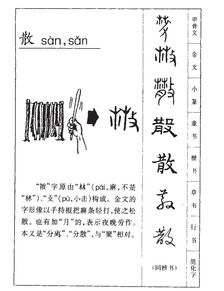 散 sàn, sǎn
"散"字原由"𣏟"(pài,麻,不是
"林")、"攴"(pū,小击)构成。金文的
字形像以手持棍把麻条轻打,使之松
散。也有加"月"的,表示夜晚劳作。
本义是"分离"、"分散",与"聚"相对。
甲骨文
金文
小篆
隶书
楷书
草书
行书
简化字
散
散
散
(同楷书)